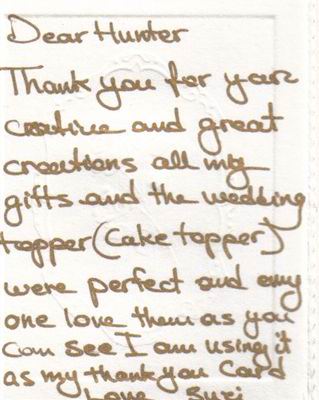 Dear Hunter
Thank you for your
creative and great
creations all my
gifts and the wedding
topper (Cake topper)
were perfect and any
one love them as you
can see I am using it
as my thank you card
Love Suzi